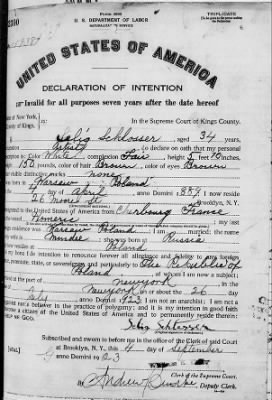 Form 2202
TRIPLICATE
U. S. DEPARTMENT OF LABOR
NATURALIZATION SERVICE
UNITED STATES OF AMERICA
DECLARATION OF INTENTION
Invalid for all purposes seven years after the date hereof
State of New York,
County of Kings,
In the Supreme Court of Kings County.
Selig Schlosser aged 34 years,
occupation Artist, do declare on oath that my personal
description is: Color White, complexion Fair, height 5 feet inches,
weight 150 pounds, color of hair Brown, color of eyes Brown
other visible distinctive marks none
born in Warsaw Poland
on the 4 day of April, anno Domini 1889; I now reside
at 26 St, Brooklyn, N. Y.
I emigrated to the United States of America from Cherbourg France
on the vessel Homeric; my last
foreign residence was Warsaw Poland; I am married; the name
of my wife is Mindel; she was born at Russia
and now resides at Poland
It is my bona fide intention to renounce forever all allegiance and fidelity to any foreign
prince, potentate, state, or sovereignty, and particularly to The Republic of
Poland
at the port of New York
New York on or about the 26 day
of July, anno Domini 1923; I am not an anarchist; I am not a
polygamist nor a believer in the practice of polygamy; and it is my intention in good faith
to become a citizen of the United States of America and to permanently reside therein:
SO HELP ME GOD.
Selig Schlosser
Subscribed and sworn to before me in the office of the Clerk of said Court
at Brooklyn, N. Y., this 4 day of September
anno Domini 1923
Clerk of the Supreme Court.
By Andrew Deputy Clerk.